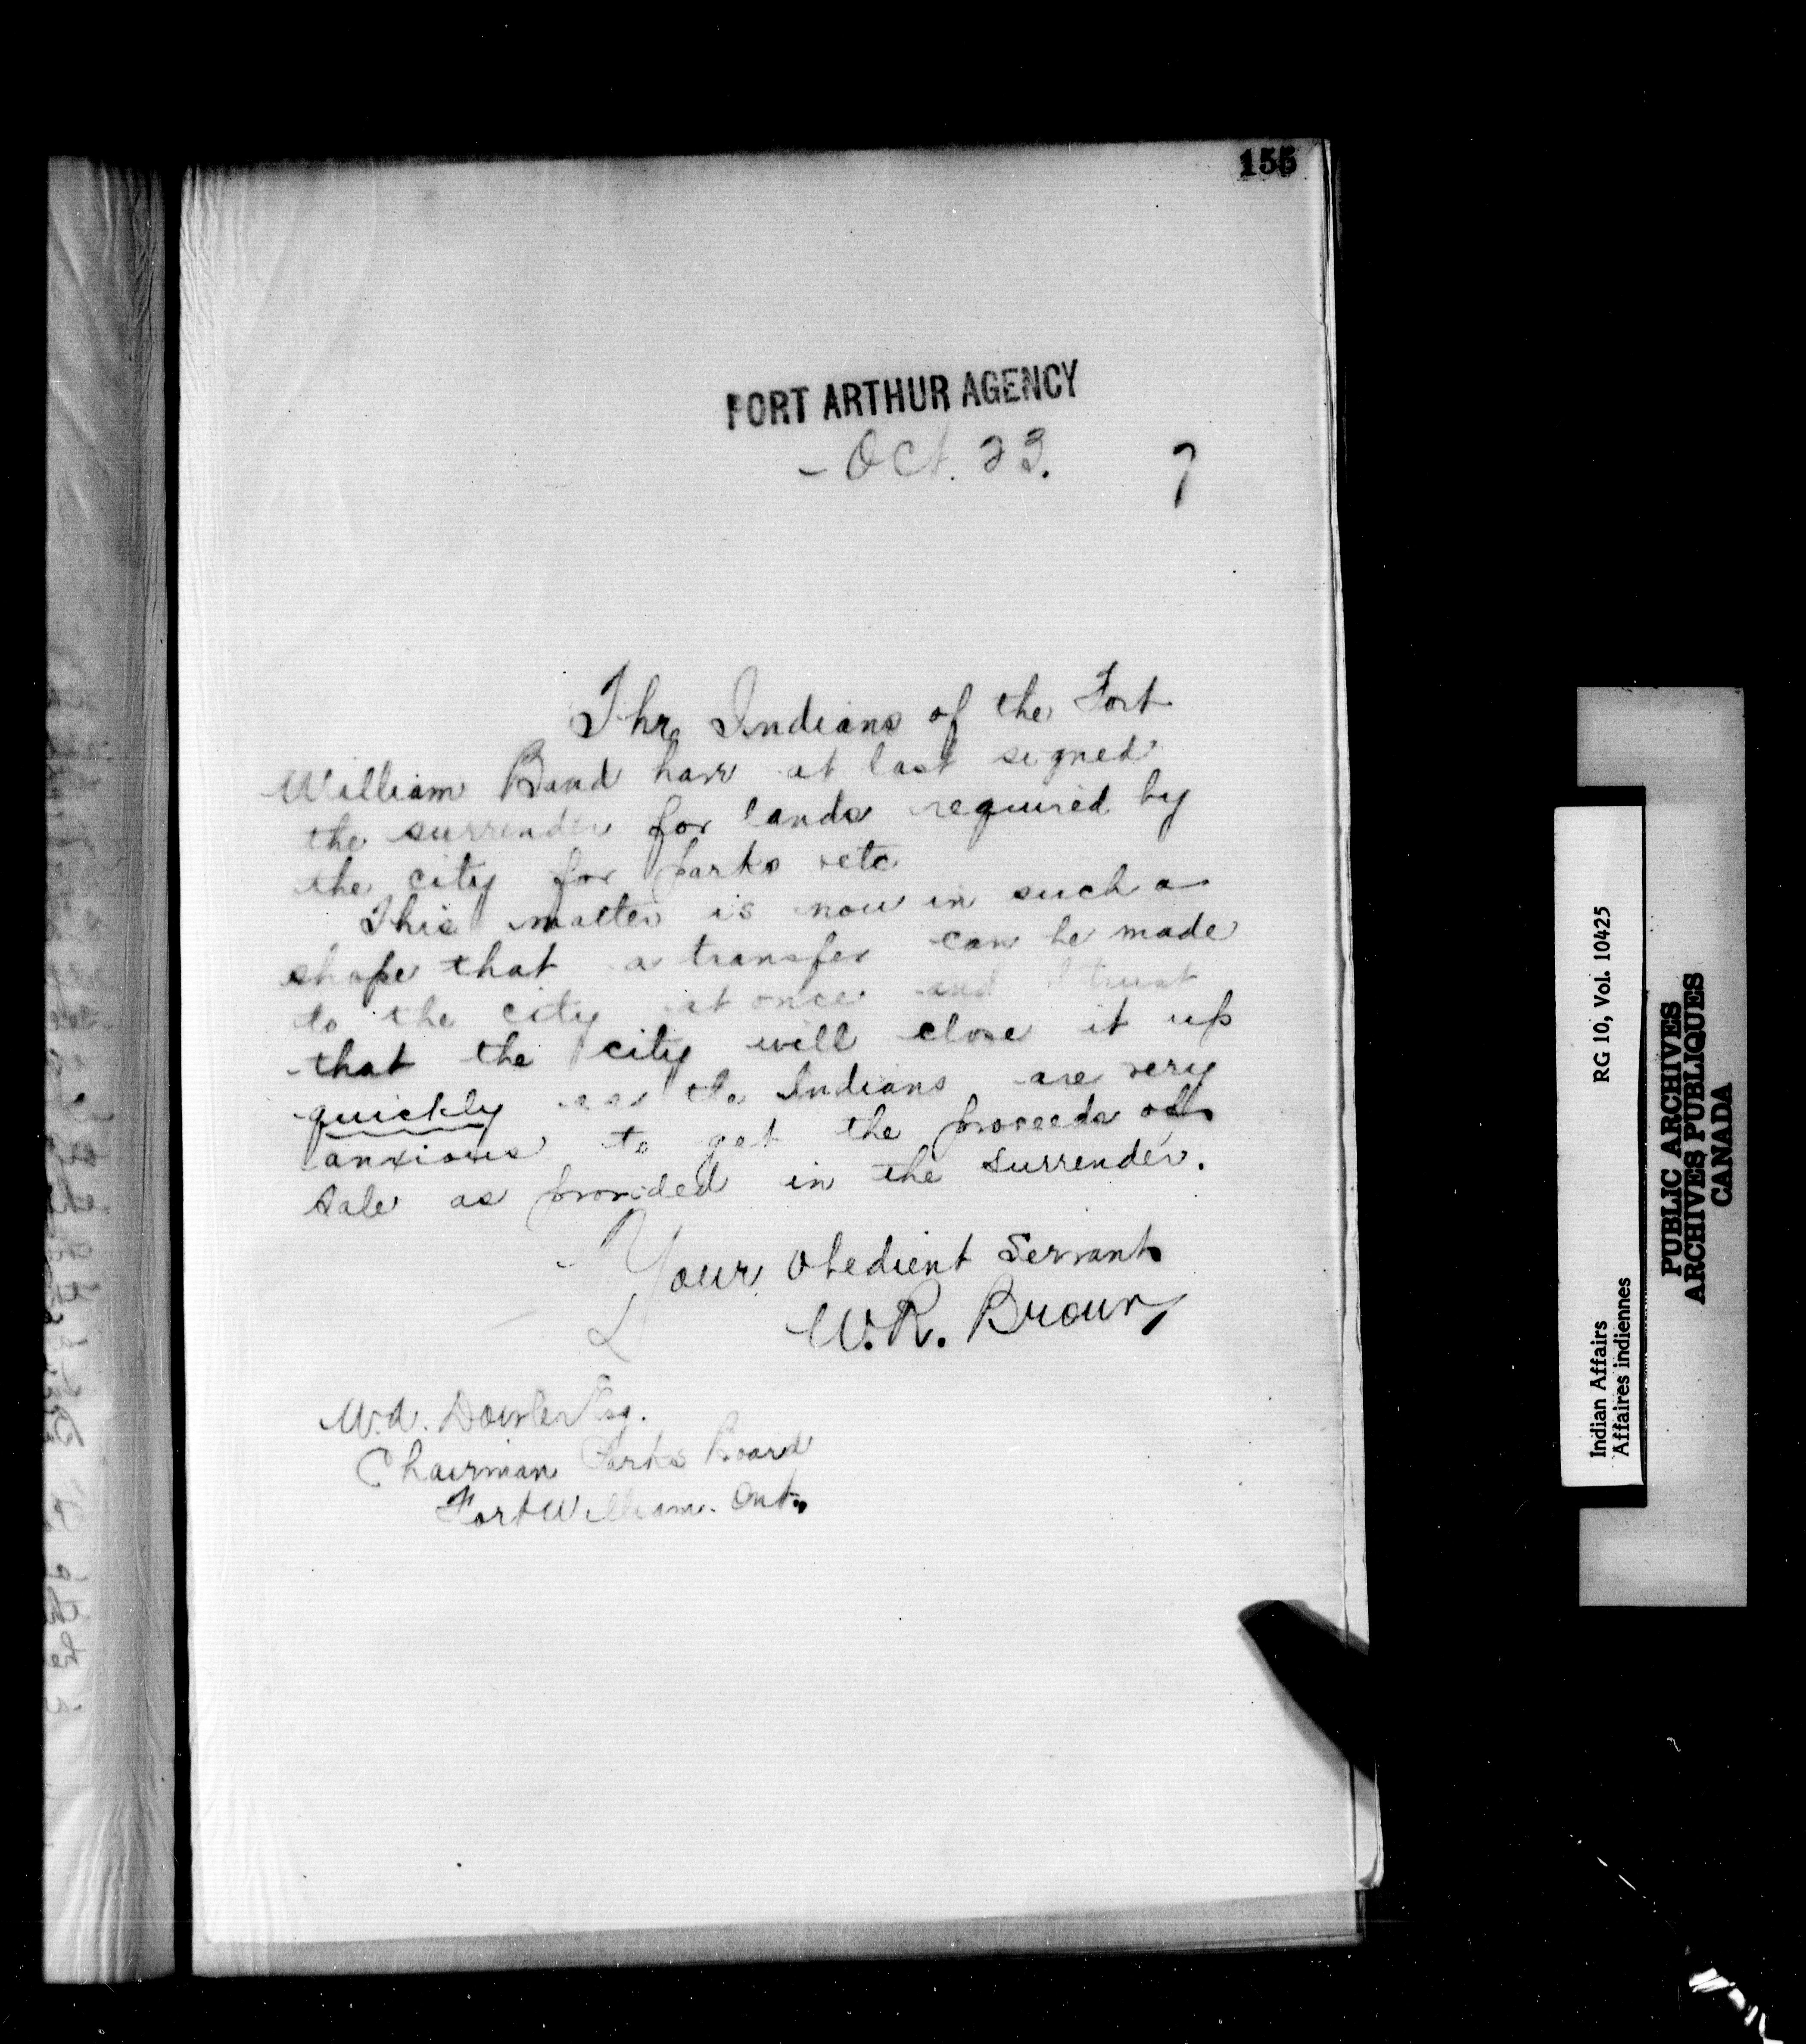 155
PORT ARTHUR AGENCY
- Oct. 23. 7
The Indians of the Fort
William Band have at last signed
the surrender for lands required by
the city for parks etc
This matter is now in such a
shape that a transfer can be made
to the city at once and I trust
that the city will close it up
quickly as the Indians are very
anxious to get the proceeds of
sale as provided in the surrender.
Your Obedient Servant
W.R. Brown
W.A. Dowler Esq.
Chairman Parks Board
Fort William. Ont.
Indian Affairs RG 10, Vol. 10425
Affaires indiennes
PUBLIC ARCHIVES
ARCHIVES PUBLIQUES
CANADA